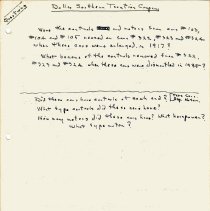 Questions
Dallas Southern Traction Company
Were the controls and motors from cars #103,
#104 and #105 reused on cars #322, #323 and #324
when these cars were enlarged in 1917?
What became of the controls removed from #322,
#323 and #324 when these cars were dismantled in
Did these cars have controls at each end?
What type controls did these cars have?
How many motors did these cars have? What horsepower?
What type motor?